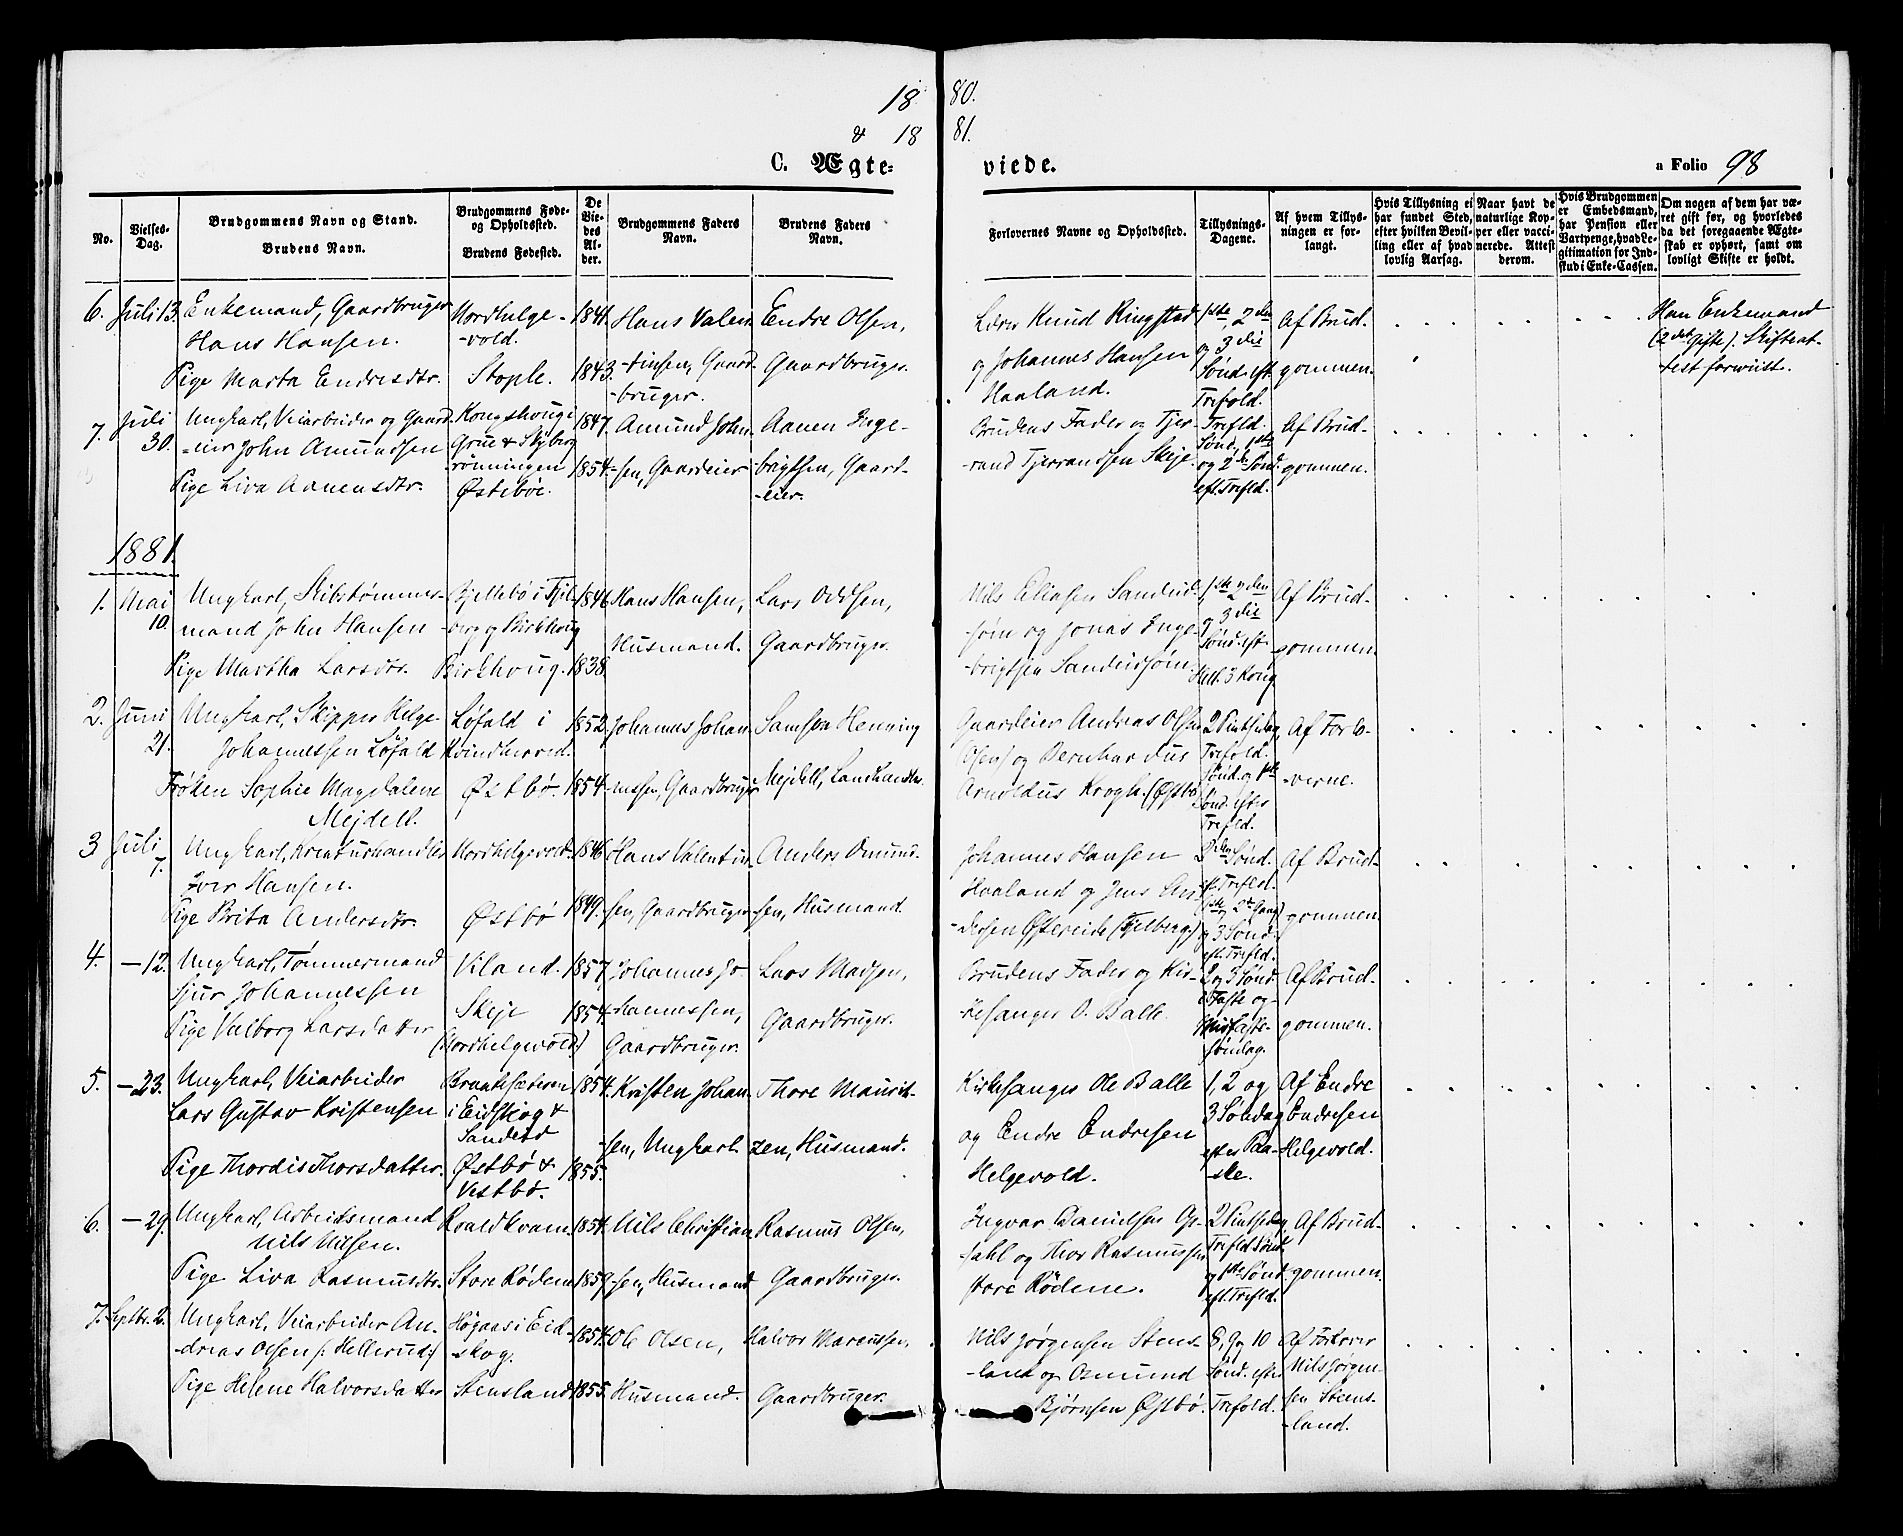 18 80.
& 18 81.
C. Ægte- viede. a Folio 98
No.
Vielses-Dag.
Brudgommens Navn og Stand.
Brudens Navn.
Brudgommens Føde- og Opholdssted.
Brudens Fødested.
De Viedes Alder.
Brudgommens Faders Navn.
Brudens Faders Navn.
Forlovernes Navne og Opholdssted.
Tillysnings-Dagene.
Af hvem Tillysningen er forlangt.
Hvis Tillysning ei har fundet Sted, efter hvilken Bevilling eller af hvad lovlig Aarsag.
Naar havt de naturlige Kopper eller vaccinerede. Attest derom.
Hvis Brudgommen er Embedsmand, har Pension eller Vartpenge, hvad Legitimation for Indskud i Enke-Cassen.
Om nogen af dem har været gift før, og hvorledes da det foregaaende Ægteskab er ophørt, samt om lovligt Skifte er holdt.
6. Juli 13.
Enkemand, Gaardbruger
Hans Hansen.
Pige Marta Endresdtr.
Nordhelge-
-vold.
Stople.
1841.
1843.
Hans Valen-
-tinsen, Gaard-
-bruger.
Endre Olsen,
Gaardbruger.
Lærer Knud Ringstad
og Johannes Hansen
Haaland.
1ste, 2den
og 3die
Sønd. eft.
Trefold.
Af Brud-
gommen.
Han Enkemand
(2det Gifte). Skifteat-
test forevist.
7. Juli
30.
Ungkarl, Veiarbeider og Gaard-
-eier John Amundsen
Pige Liva Aanensdtr.
Kongshouge
Grue & Skjberg
rønningen
Østebøe.
1847.
1854.
Amund John-
-sen, Gaardeier
Aanen Inge-
-brigtsen, Gaard-
-eier.
Brudens Fader og Tjer-
-rand Tjerrandsen Skeje.
Trefld.
Sønd., 1ste
og 2d. Sønd.
eft. Trefld.
Af Brud-
gommen.
1881.
1. Mai
10.
Ungkarl, Skibstømmer-
mand John Hansen
Pige Martha Larsdtr.
Bjellebø i Fjel-
berg og Birkhoug
Birkhoug.
1846.
1838.
Hans Hansen,
Husmand.
Lars Oddsen,
Gaardbruger.
Nils Eliasen Sandeid-
-søm og Jonas Inge-
-brigtsen Sandeidsøm.
1ste 2den
og 3die
Sønd. eft.
Hell. 3 Kong
Af Brud-
gommen.
2. Juni
21.
Ungkarl, Skipper Helge
Johannessen Løfald
Frøken Sophie Magdalene
Mejdell.
Løfald i
Kvindherred.
Østbø.
1852.
1854.
Johannes Johan-
-nessen, Gaardbruger
Samson Henning
Mejdell, Landhandler
Gaardeier Andreas Olsen
Olsen) og Bernhardus
Arnoldus Krogh. (Østbø
2 Pintsedag,
Trefold.
Sønd. og 1ste
Sønd. efter
Trefld.
Af Forlo-
-verne.
3 Juli
7.
Ungkarl, Kreaturhandler
Iver Hansen.
Pige Brita Andersdtr.
Nordhelgevold.
Østbø
1846
1849.
Hans Valentin-
-sen, Gaardbruger
Anders Omund-
-sen, Husmand.
Johannes Hansen
Haaland og Jens An-
-dersen Østereide (Fjelberg.)
2den Sønd.
e. Trefld.
(1ste og 2de Gang)
og 3 Sønd.
eft. Trefld.
Af Brud-
gommen.
4. — 12.
Ungkarl, Tømmermand
Sjur Johannessen
Pige Valborg Larsdatter
Viland.
Skeje
(Nordhelgevold.)
1857.
1854.
Johannes Jo-
-hannessen,
Gaardbruger.
Lars Madsen,
Gaardbruger.
Brudens Fader og Kir-
-kesanger O. Balle.
2 og 3 Sønd.
i Faste og
Midfaste-
søndag.
Af Brud-
gommen.
5. — 23.
Ungkarl, Veiarbeider
Lars Gustav Kristensen
Pige Thordis Thorsdatter.
Braatesæteren
i Eidskog &
Sandeid
Østbø &
Vestbø.
1854.
1855.
Kristen Johan-
-sen, Ungkarl.
Thore Maurit-
zen, Husmand.
Kirkesanger Ole Balle
og Endre Endresen
Helgevold.
1, 2 og
3 Søndag
efter Paa-
ske.
Af Endre
Endresen
Helgevold.
6. — 29.
Ungkarl, Arbeidsmand
Nils Nilsen.
Pige Liva Rasmusdtr.
Roaldkvam.
Store Rødene
1854.
1859.
Nils Christian-
-sen, Husmand
Rasmus Olsen,
Gaardbruger.
Ingvar Danielsen Op-
-sahl og Thor Rasmussen
store Rødene.
2 Pintsedag,
Trefld. Sønd.
og 1ste Sønd.
eft. Trefld.
Af Brud-
gommen.
7. Septbr. 2.
Ungkarl, Veiarbeider An-
-dreas Olsen /: Hellerud:/
Pige Helene Halvorsdatter
Høgaas i Eid-
-skog.
Stensland
1854.
1855.
Ole Olsen,
Husmand.
Halvor Marensen,
Gaardbruger.
Nils Jørgensen Stens-
-land og Osmund
Bjørnsen Østbø.
8, 9 og 10
Sønd. efter
Trefold.
Af Forlover
Nils Jørgen-
sen Stens-
-land.